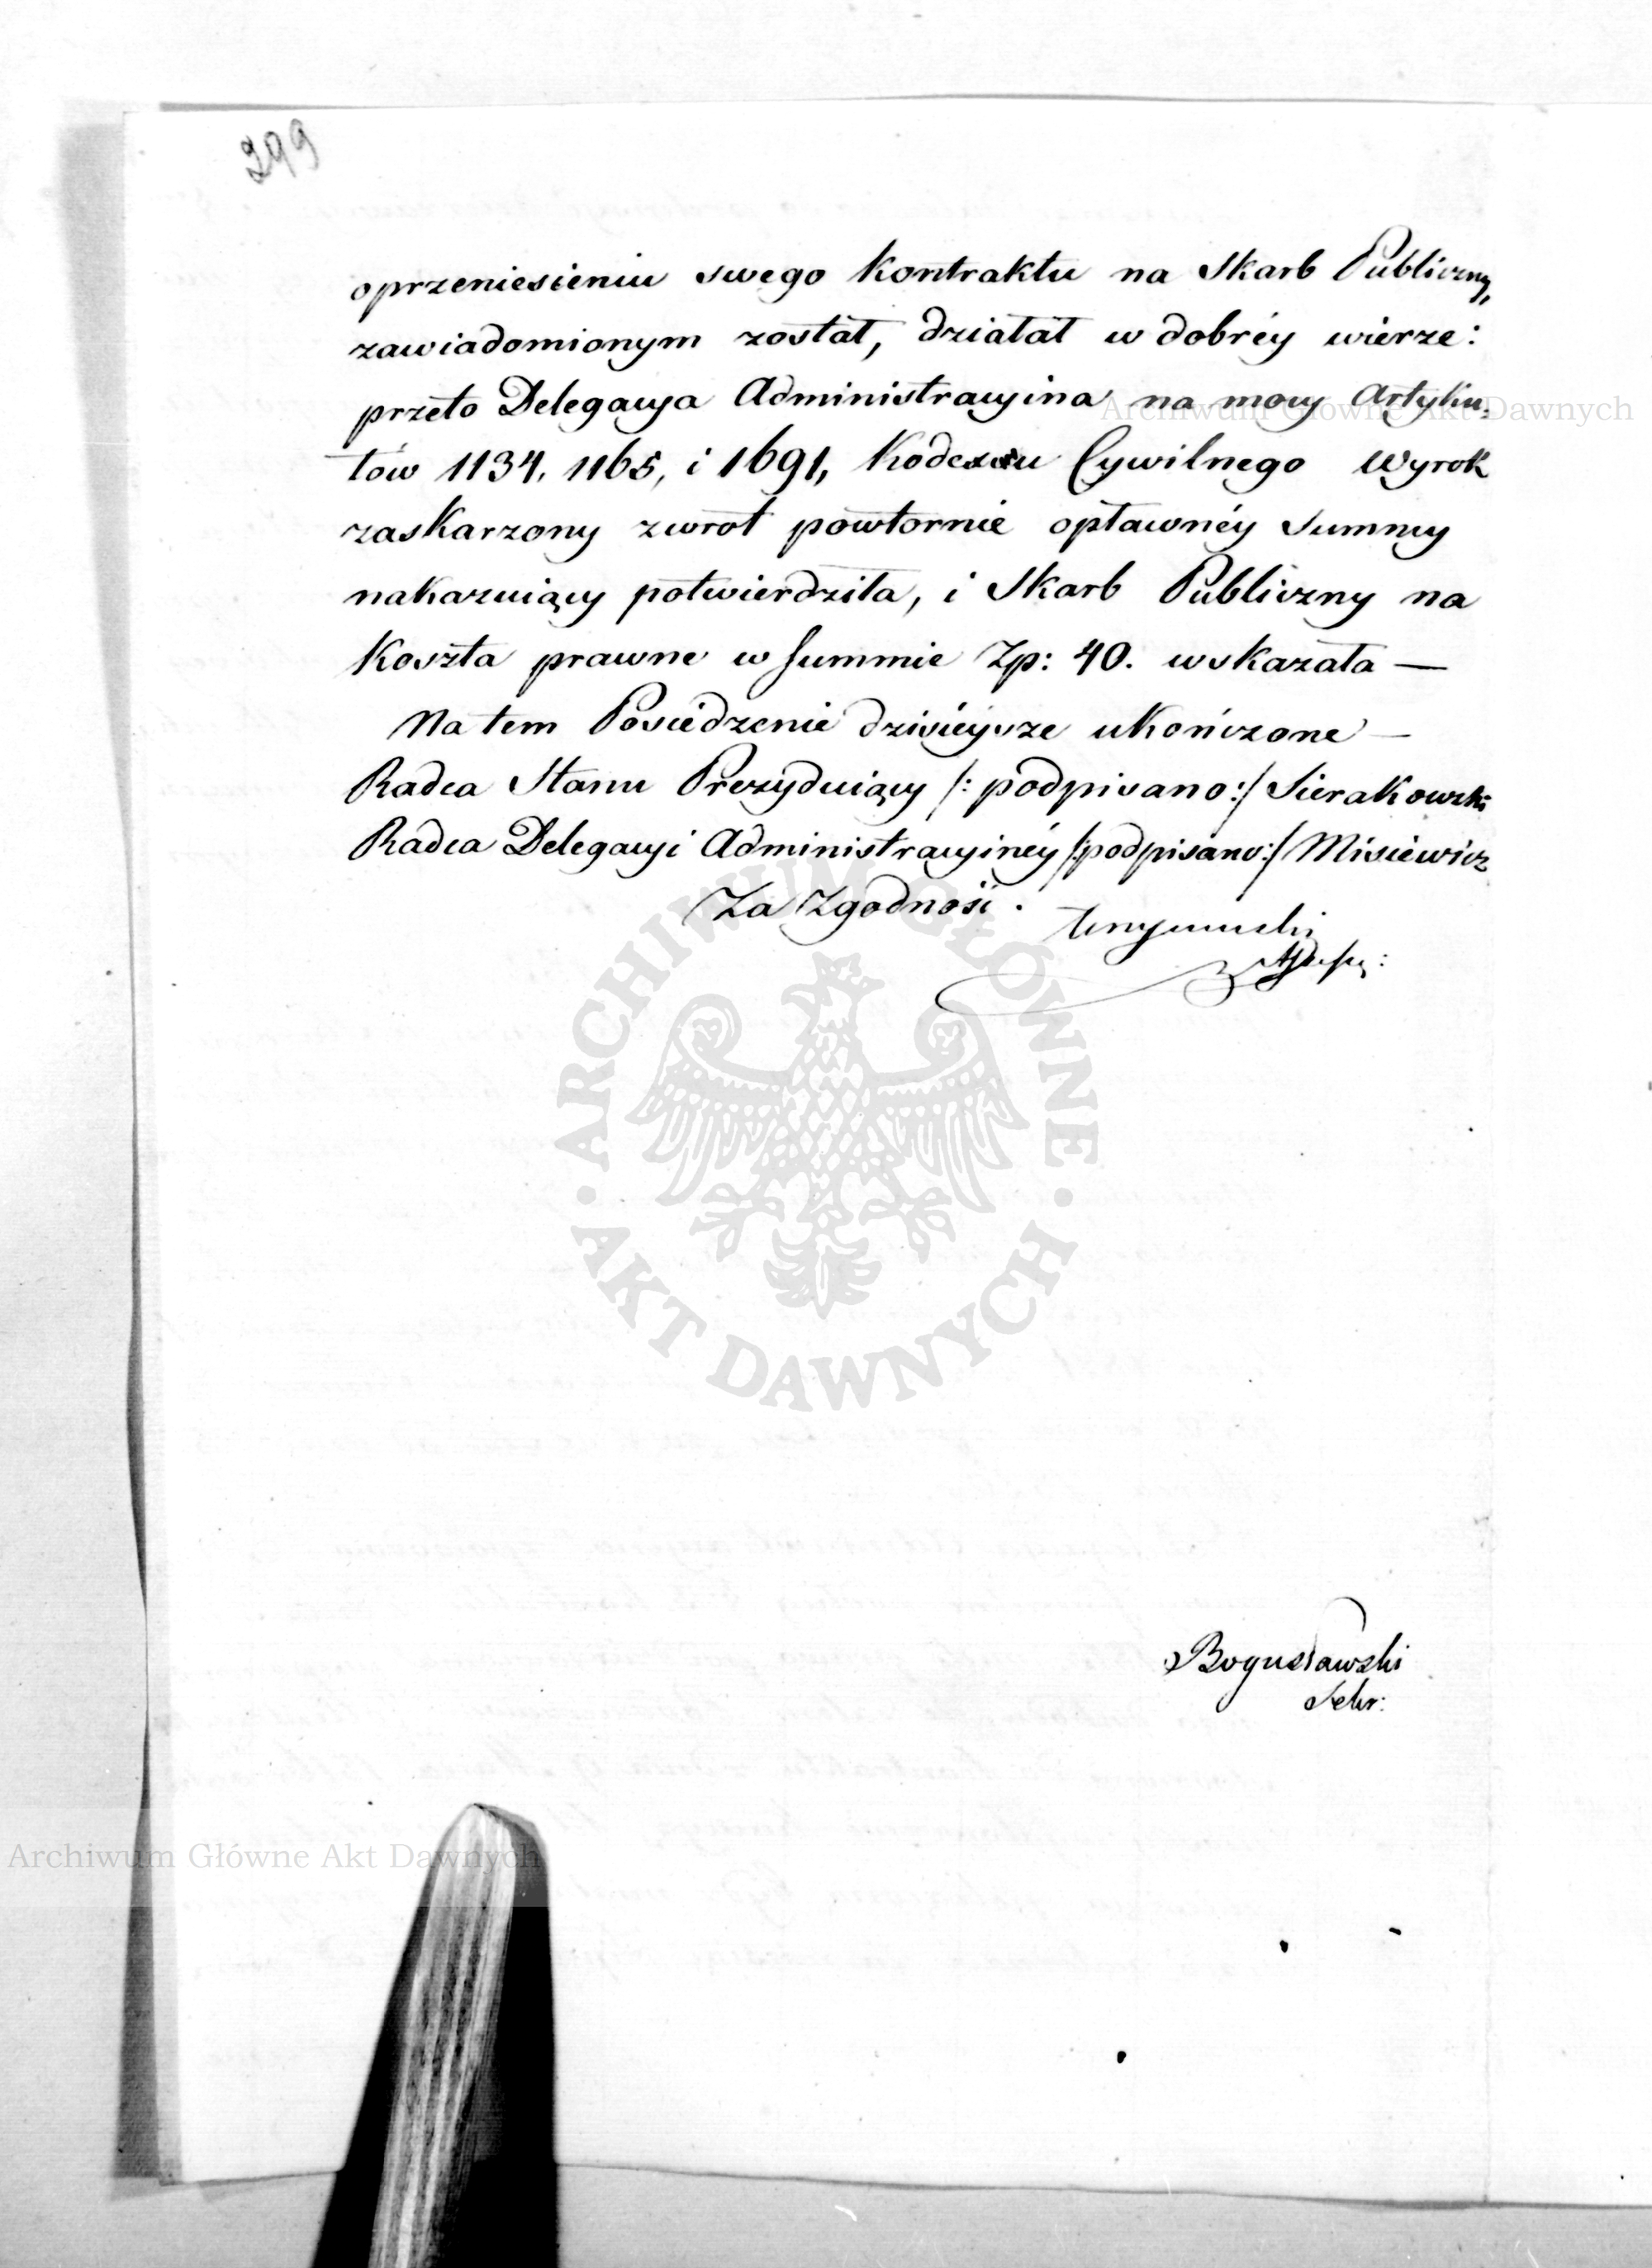 299
oprzeniesieniu swego Kontraktu na Skarb Publiczny,
zawiadomionym został, działał w dobréy wierze:
przeto Delegacya Administracyina na mocy Artyku-
łów 1134, 1165, i 1691, Kodexu Cywilnego Wyrok
zaskarzony zwrot powtornie opławnéy Summy
nakazuiący potwierdziła, i Skarb Publiczny na
Koszta prawne w Summie Zp: 40. wskazała —
Na tem Posiedzenie dzisieysze ukończone —
Radca Stanu Prezyduiący /: podpisano :/ Sierakowski
Radca Delegacyi Administracyinéy /: podpisano :/ Misiewicz
Za Zgodność.
Bogusławski
Sekr:
Archiwum Główne Akt Dawnych
ARCHIWUM GŁÓWNE · AKT DAWNYCH ·
Archiwum Główne Akt Dawnych